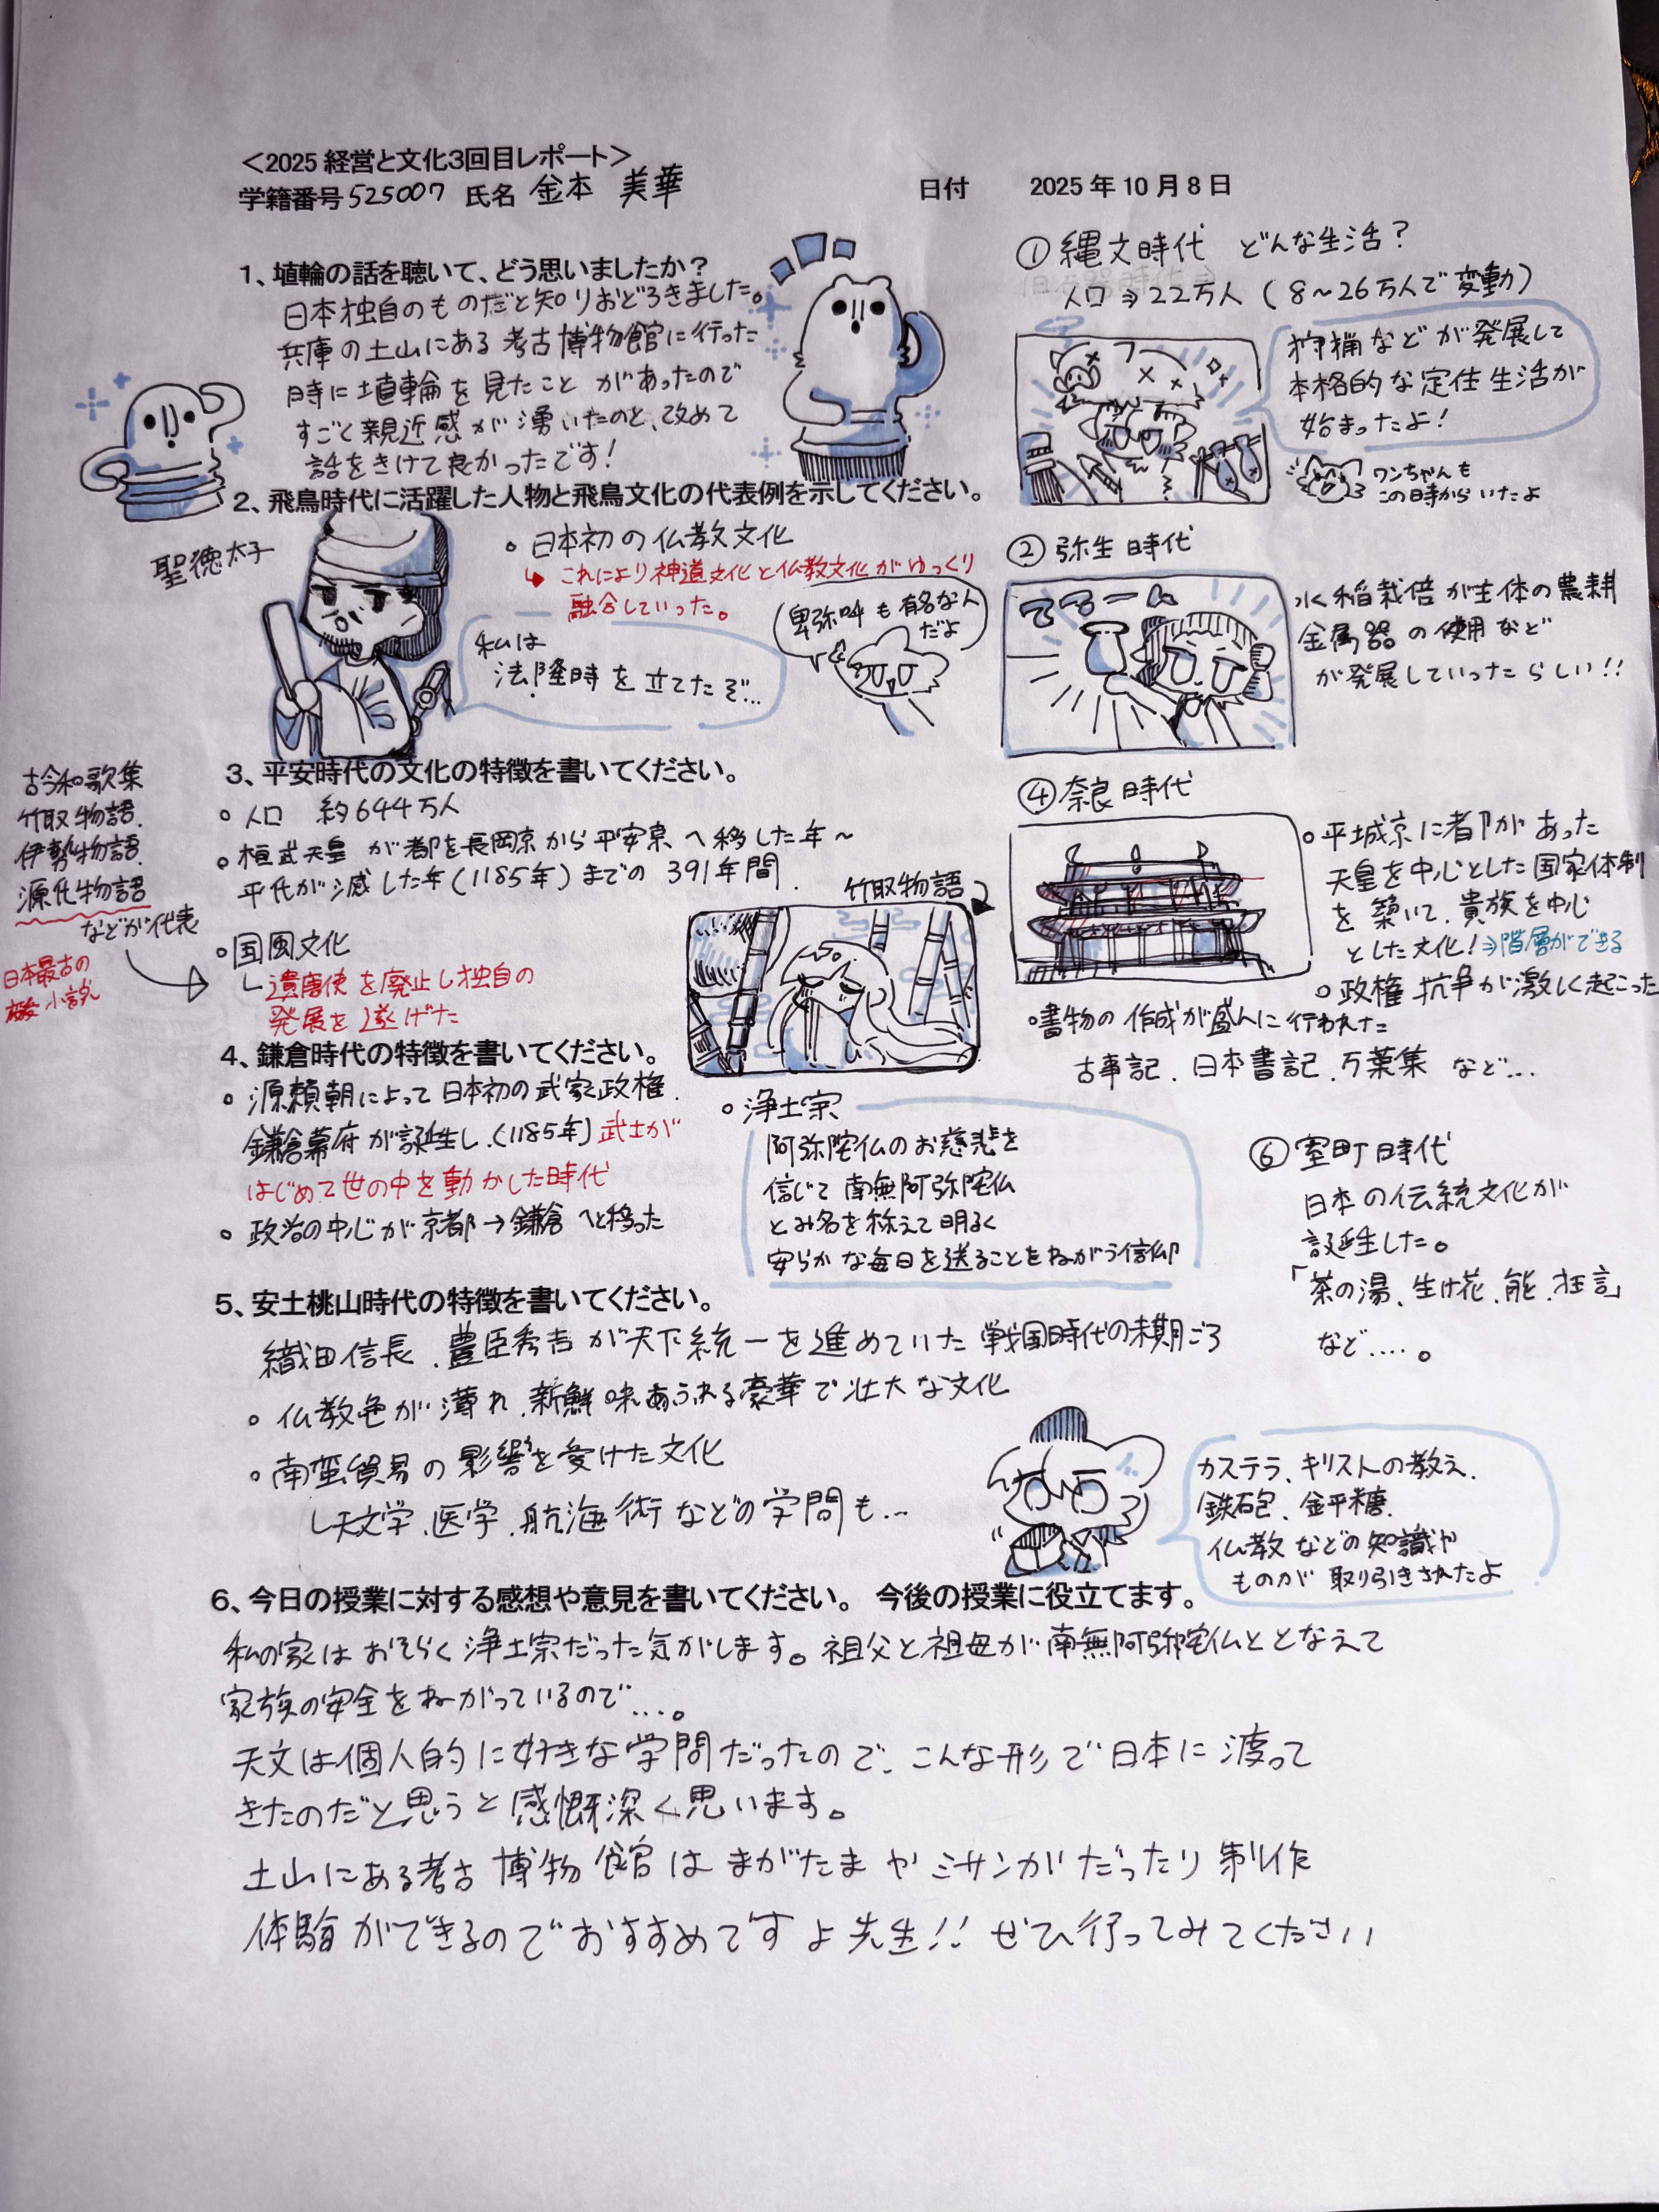 ＜2025 経営と文化3回目レポート＞
学籍番号 525007 氏名 金本 美華
日付 2025 年 10 月 8 日
1、埴輪の話を聴いて、どう思いましたか？
日本独自のものだと知りおどろきました。
兵庫の土山にある考古博物館に行った
時に埴輪を見たことがあったので
すごく親近感が湧いたのと、改めて
話をきけて良かったです！
2、飛鳥時代に活躍した人物と飛鳥文化の代表例を示してください。
聖徳太子
。日本初の仏教文化
↳ これにより神道文化と仏教文化がゆっくり
融合していった。
私は
法隆時を立てたぞ...
卑弥呼も有名な人
だよ
3、平安時代の文化の特徴を書いてください。
。人口 約644万人
。桓武天皇が都を長岡京から平安京へ移した年～
平氏が滅した年(1185年)までの 391年間.
。国風文化
↳遣唐使を廃止し独自の
発展を遂げた
古今和歌集
竹取物語.
伊勢物語.
源氏物語
などが代表
日本最古の
小説
竹取物語
4、鎌倉時代の特徴を書いてください。
。源頼朝によって日本初の武家政権.
鎌倉幕府が誕生し.(1185年)武士が
はじめて世の中を動かした時代
。政治の中心が京都→鎌倉へと移った
。浄土宗
阿弥陀仏のお慈悲を
信じて南無阿弥陀仏
とみ名を称えて明るく
安らかな毎日を送ることをねがう信仰
5、安土桃山時代の特徴を書いてください。
織田信長.豊臣秀吉が天下統一を進めていた戦国時代の末期ごろ
。仏教色が薄れ.新鮮味あふれる豪華で壮大な文化
。南蛮貿易の影響を受けた文化
↳天文学.医学.航海術などの学問も...
カステラ、キリストの教え.
鉄砲、金平糖.
仏教などの知識や
ものが取り引きされたよ
6、今日の授業に対する感想や意見を書いてください。 今後の授業に役立てます。
私の家はおそらく浄土宗だった気がします。祖父と祖母が南無阿弥陀仏ととなえて
家族の安全をねがっているので...。
天文は個人的に好きな学問だったので、こんな形で日本に渡って
きたのだと思うと感慨深く思います。
土山にある考古博物館はまがたまやミサンガだったり制作
体験ができるのでおすすめですよ先生!! ぜひ行ってみてください
①縄文時代 どんな生活？
人口⇒22万人 (8～26万人で変動)
狩猟などが発展して
本格的な定住生活が
始まったよ！
ワンちゃんも
この時からいたよ
②弥生時代
てってれーん
水稲栽培が主体の農耕
金属器の使用など
が発展していったらしい!!
④奈良時代
。平城京に都があった
天皇を中心とした国家体制
を築いて.貴族を中心
とした文化！⇒階層ができる
。政権抗争が激しく起こった
。書物の作成が盛んに行われた
古事記.日本書記.万葉集 など...
⑥室町時代
日本の伝統文化が
誕生した。
「茶の湯、生け花.能.狂言」
など....。